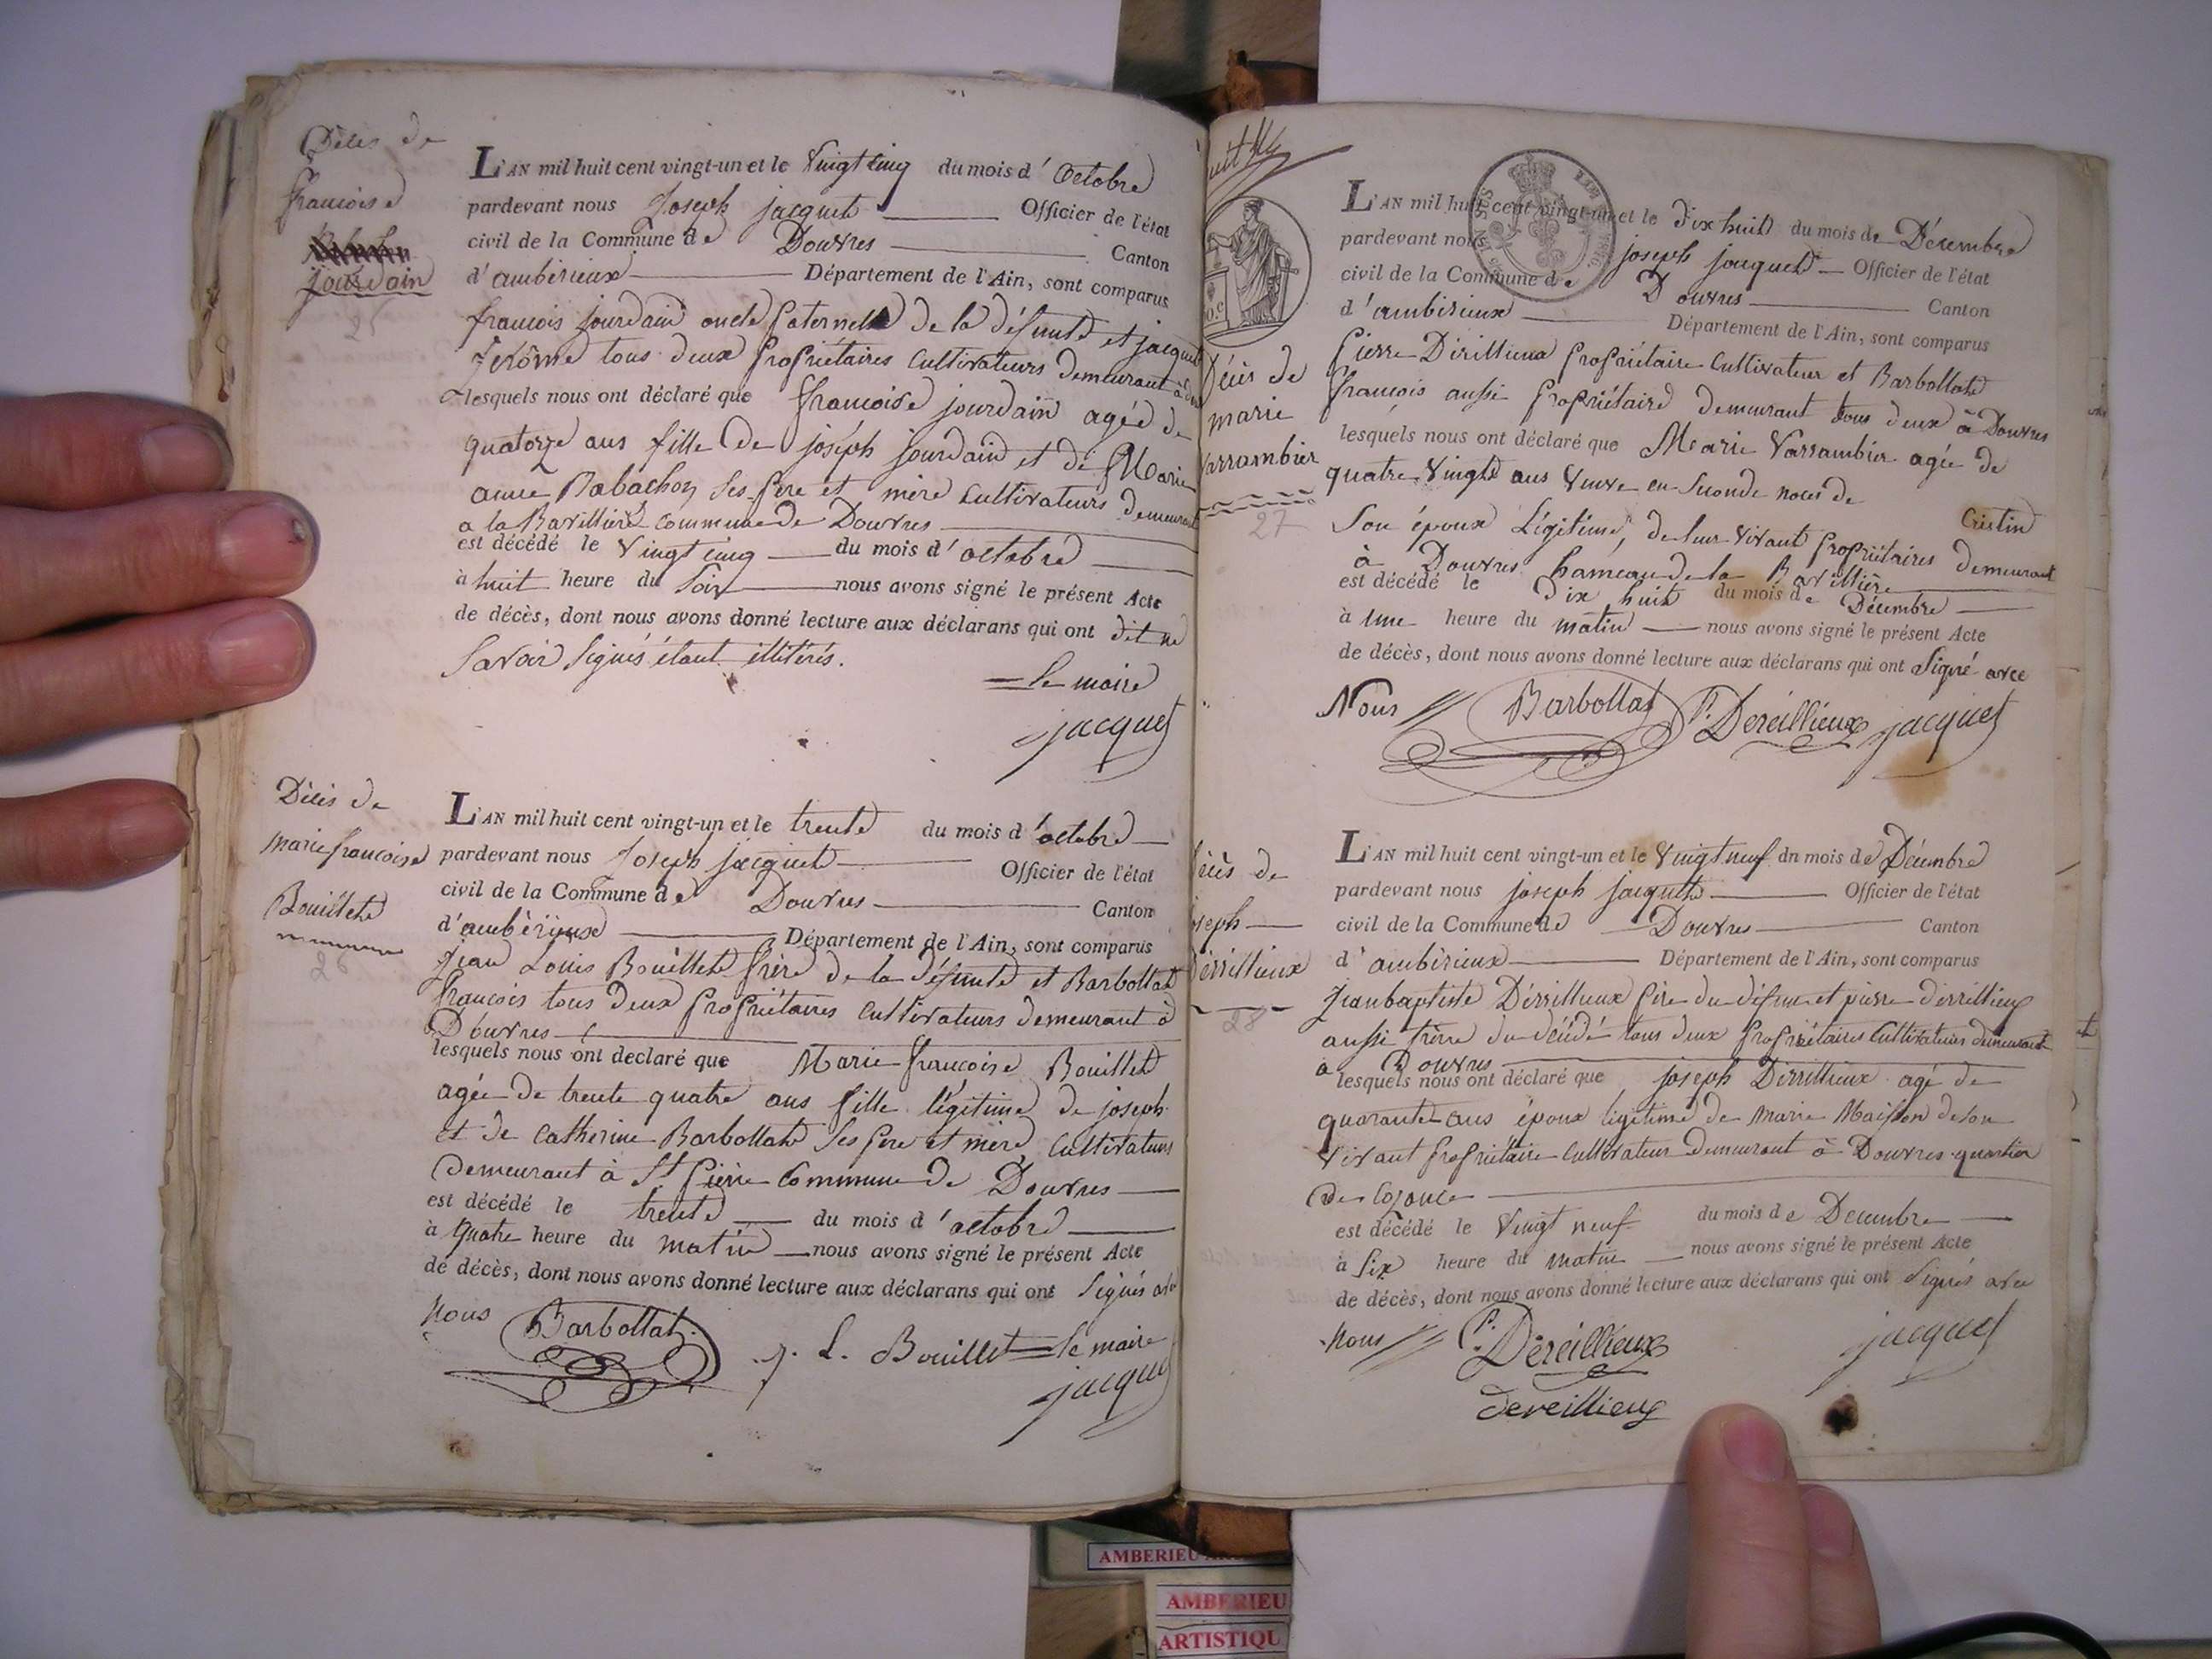 Décès de
francoise
jourdain
25
L'AN mil huit cent vingt-un et le vingt cinq du mois d'octobre
pardevant nous Joseph jacquet Officier de l'état
civil de la Commune de Douvres Canton
d'ambérieux Département de l'Ain, sont comparus
francois jourdain oncle paternelle de la défunte et jacquet
Jerôme tous deux propriétaires cultivateurs demeurant à
lesquels nous ont déclaré que francoise jourdain agée de
quatorze ans fille de joseph jourdain et de Marie
anne Babachon ses père et mère cultivateurs demeurant
a la Bavillière commune de Douvres
est décédé le vingt cinq du mois d'octobre
à huit heure du soir nous avons signé le présent Acte
de décès, dont nous avons donné lecture aux déclarans qui ont dit ne
savoir signés étant illitérés.
le maire
jacquet
Décès de
marie francoise
Bouillet
26
L'AN mil huit cent vingt-un et le trente du mois d'octobre
pardevant nous Joseph jacquet Officier de l'état
civil de la Commune de Douvres Canton
d'ambérieux Département de l'Ain, sont comparus
Jean Louis Bouillet frère de la défunte et Barbollat
francois tous deux propriétaires cultivateurs demeurant à
Douvres
lesquels nous ont declaré que Marie francoise Bouillet
agée de trente quatre ans fille légitime de joseph
et de Catherine Barbollat ses père et mère cultivateurs
demeurant à St pierre commune de Douvres
est décédé le trente du mois d'octobre
à quatre heure du matin nous avons signé le présent Acte
de décès, dont nous avons donné lecture aux déclarans qui ont signés avec
nous Barbollat. j. L. Bouillet le maire
jacquet
Décès de
marie
Varrambier
27
L'AN mil huit cent vingt-un et le dix huit du mois de Décembre
pardevant nous joseph jacquet Officier de l'état
civil de la Commune de Douvres Canton
d'ambérieux Département de l'Ain, sont comparus
pierre Dirillieux propriétaire cultivateur et Barbollat
francois aussi propriétaire demeurant tous deux à Douvres
lesquels nous ont déclaré que Marie Varrambier agée de
quatre vingt ans veuve en seconde noces de Cristin
son époux Légitime, de leur vivant propriétaires demeurant
à Douvres hameau de la Bavillière
est décédé le dix huit du mois de Décembre
à une heure du matin nous avons signé le présent Acte
de décès, dont nous avons donné lecture aux déclarans qui ont signé avec
Nous Barbollat P. Dereillieux jacquet
Décès de
joseph
Dérrillieux
28
L'AN mil huit cent vingt-un et le vingt neuf du mois de Décembre
pardevant nous joseph jacquet Officier de l'état
civil de la Commune de Douvres Canton
d'ambérieux Département de l'Ain, sont comparus
jeanbaptiste Dérrillieux père du défunt et pierre dérrillieux
aussi frère du décédé tous deux propriétaires cultivateurs demeurant
à Douvres
lesquels nous ont déclaré que joseph Dirrillieux agé de
quarante ans époux légitime de marie Maisson de son
vivant propriétaire cultivateur demeurant à Douvres quartier
de Cozance
est décédé le vingt neuf du mois de Décembre
à six heure du matin nous avons signé le présent Acte
de décès, dont nous avons donné lecture aux déclarans qui ont signés avec
nous P. Dereillieux jacquet
dereillieux
AMBERIEU
AMBERIEU
ARTISTIQU